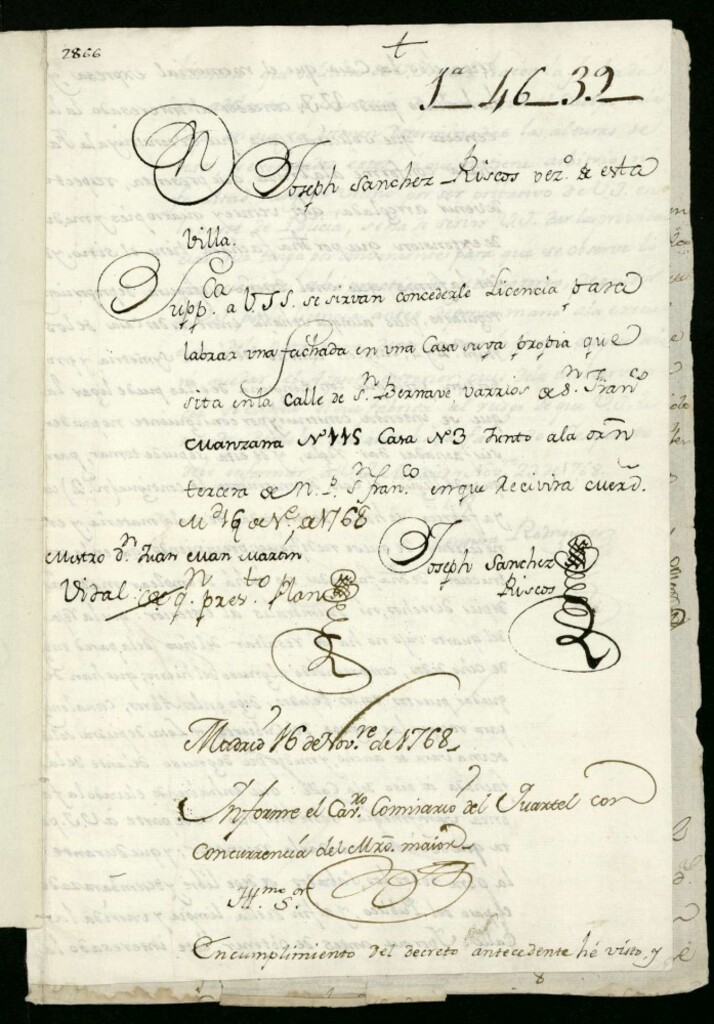 2866
1ª_46_39_
N Joseph Sanchez Riscos vez.º de esta
Villa.
Supp.ca a V.S.S. se sirvan concederle Licencia para
labrar una fachada en una Casa suya propia que
sita en la Calle de S.n Bernave varrios de S.n Fran.co
cuanzana Nº 115 Casa Nº 3 Junto a la orn
tercera de N. P. S.n Fran.co en que Recivira
M.d 16 de N.e de 1768
Joseph Sanchez
Riscos
Mestro D.n Juan Man Martin
Vidal q.n pres.to Plan
Madrid 16 de Nov.re de 1768_
Informe el Cav.ro Comisario del Quartel con
Concurrencia del Mro. maior
Ill.mo S.or
En cumplimiento del decreto antecedente he visto, y